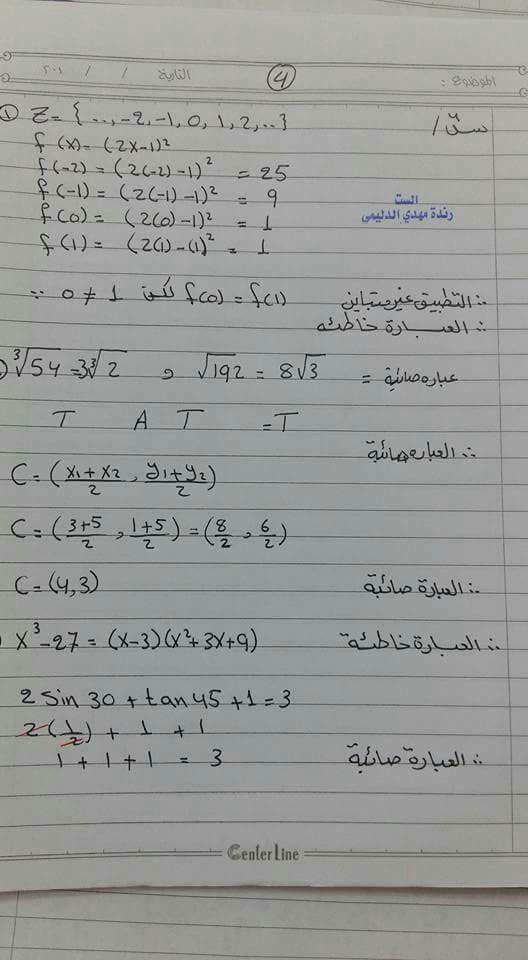 الموضوع : ④ التاريخ / / ٢٠١
سـ٥ /
① Z = {..., -2, -1, 0, 1, 2, ...}
f(x) = (2x-1)²
f(-2) = (2(-2)-1)² = 25
f(-1) = (2(-1)-1)² = 9
الست
رندة مهدي الدليمي
f(0) = (2(0)-1)² = 1
f(1) = (2(1)-(1)² = 1
∴ التطبيق غير متباين لكون f(0) = f(1) 0 ≠ 1 ∵
∴ العبارة خاطئه
∛54 = 3∛2 و √192 = 8√3 عباره صائبة =
T Λ T = T
∴ العباره صائبة
C = (x₁+x₂/2 , y₁+y₂/2)
C = (3+5/2 , 1+5/2) = (8/2 , 6/2)
C = (4,3) ∴ العبارة صائبة
x³-27 = (x-3)(x²+3x+9) ∴ العبارة خاطئة
2 sin 30 + tan 45 + 1 = 3
2(1/2) + 1 + 1
1 + 1 + 1 = 3 ∴ العبارة صائبة
CenterLine